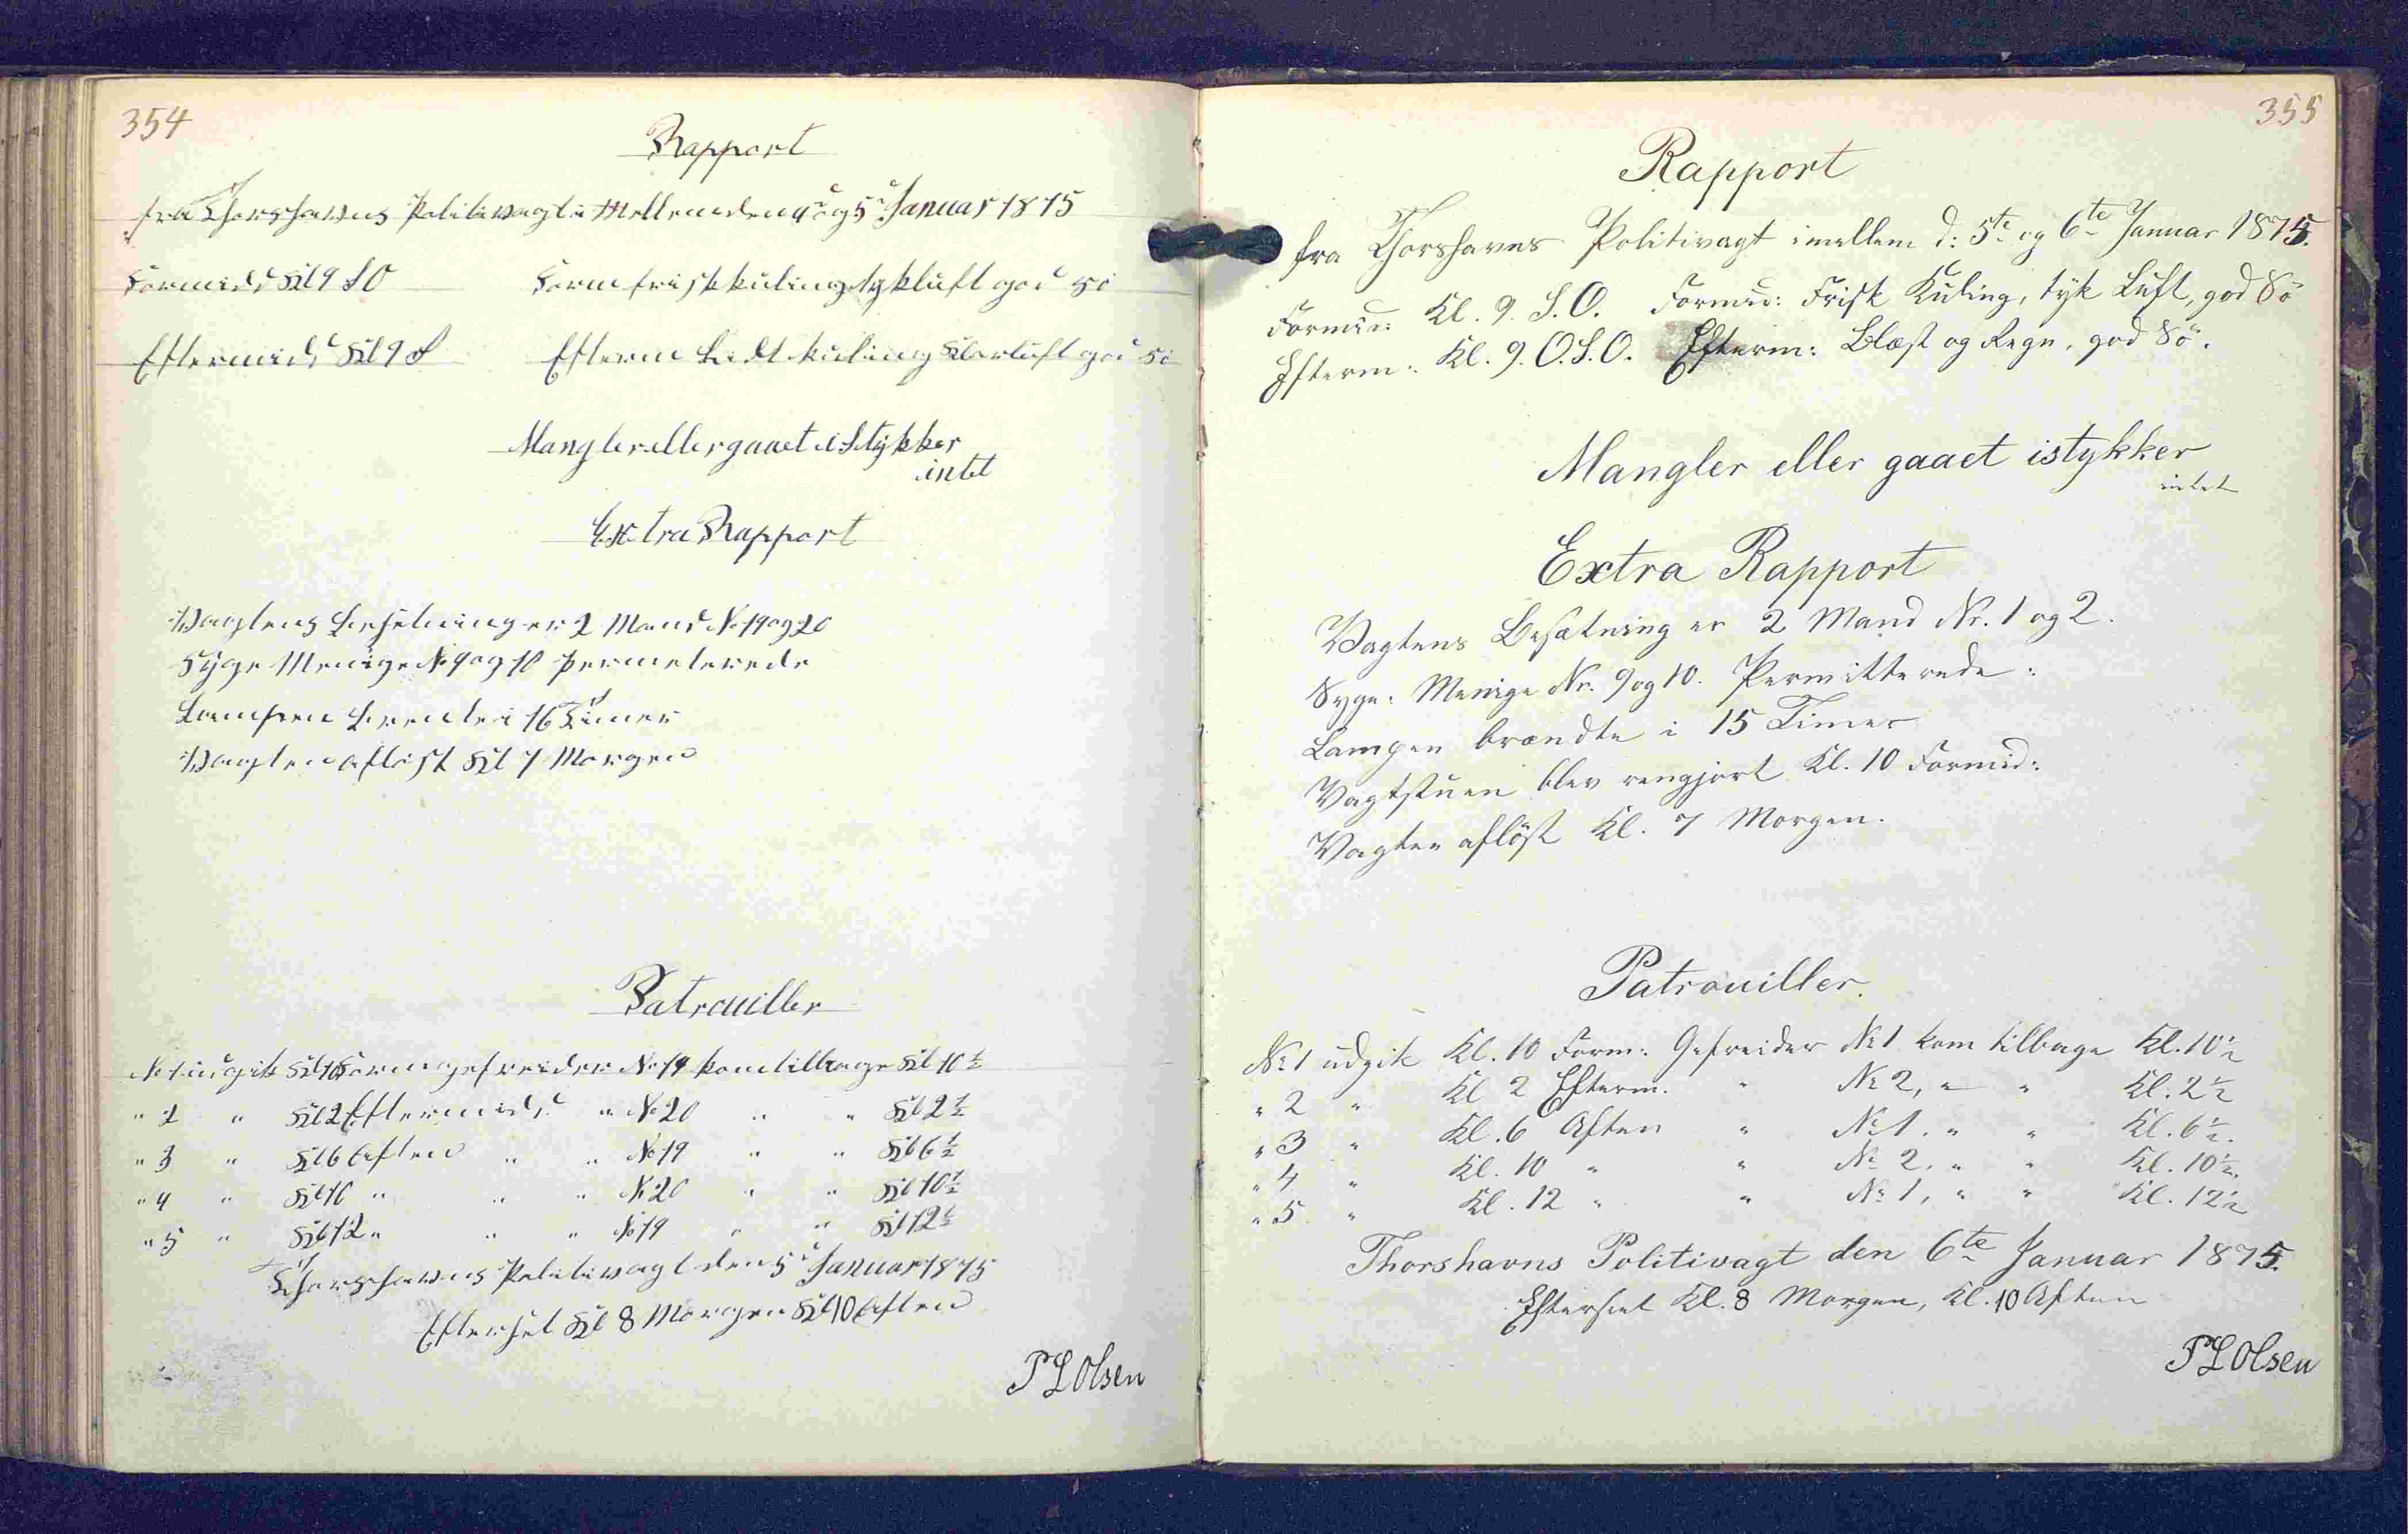 354
Rapport
fra Thorshavns Politivagt i Mellem den 4d og 5d Januar 1875
Formidd Kl 9 SO Form frisk kuling tyk luft god Sö
Eftermidd Kl 9 S Efterm Lidt kuling Klar luft god Sö
Mangler eller gaaet i Stykker
intet
Extra Rapport
Vagtens Besetning er 2 Mand No 19 og 20
Syge Menige No 9 og 10 permeterede
Lampen brente i 16 Timer
Vagten aflöst Kl 7 Morgen
Patrouiller
No 1 udgik Kl 10 Form gefreider No 19 kom tilbage Kl 10 1/2
" 2 " Kl 2 Eftermidd " No 20 " " Kl 2 1/2
" 3 " Kl 6 Aften " " No 19 " " Kl 6 1/2
" 4 " Kl 10 " " " No 20 " " Kl 10 1/2
" 5 " Kl 12 " " " No 19 " " Kl 12 1/2
Thorshavns Politivagt den 5d Januar 1875
Efterset Kl 8 Morgen Kl 10 Aften
P L Olsen
355
Rapport
fra Thorshavns Politivagt imellem d: 5te og 6te Januar 1875.
Formid: Kl. 9. S.O. Formid: Frisk Kuling, tyk Luft, god Sö
Efterm: Kl. 9. O.S.O. Efterm: Blæst og Regn, god Sö.
Mangler eller gaaet istykker
intet
Extra Rapport
Vagtens Besætning er 2 Mand Nr. 1 og 2.
Syge: Menige Nr. 9 og 10. Permitterede:
Lampen brændte i 15 Timer
Vagtstuen blev rengjort Kl. 10 Formid:
Vagten aflöst Kl. 7 Morgen.
Patrouiller.
No 1 udgik Kl. 10 Form: Gefreider No 1 kom tilbage Kl. 10 1/2
" 2 " Kl 2 Efterm. " No 2, " " Kl. 2 1/2
" 3 " Kl. 6 Aften " No 1. " " Kl. 6 1/2.
" 4 " Kl. 10 " " No 2. " " Kl. 10 1/2.
" 5. " Kl. 12 " " No 1, " " Kl. 12 1/2
Thorshavns Politivagt den 6te Januar 1875.
Efterset Kl. 8 Morgen, Kl. 10 Aften
P L Olsen